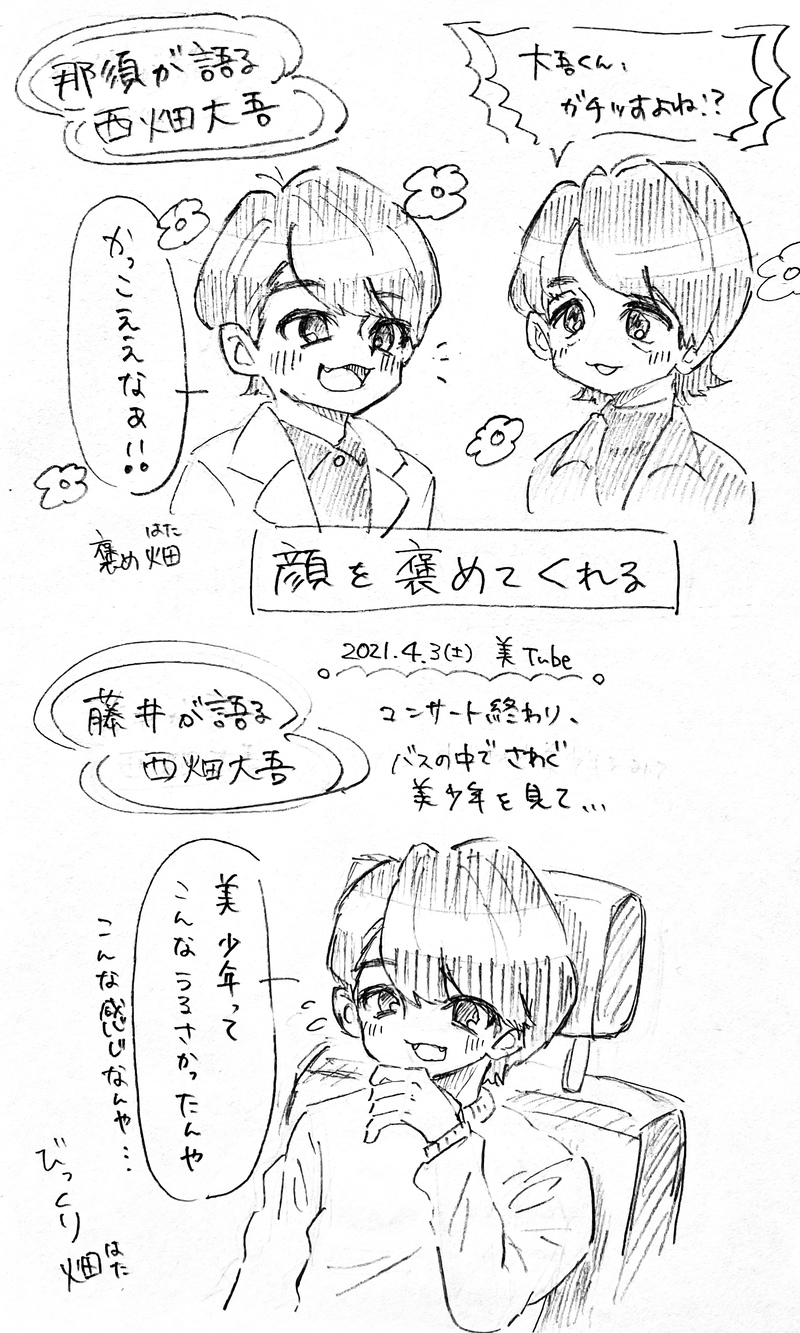 那須が語る
西畑大吾
大吾くん、
ガチッすよね!?
かっこええなぁ!!
はた
褒め畑
顔を褒めてくれる
2021.4.3(土) 美Tube
藤井が語る
西畑大吾
コンサート終わり、
バスの中でさわぐ
美少年を見て...
美少年って
こんなうるさかったんや
こんな感じなんや...
びっくり
畑
はた